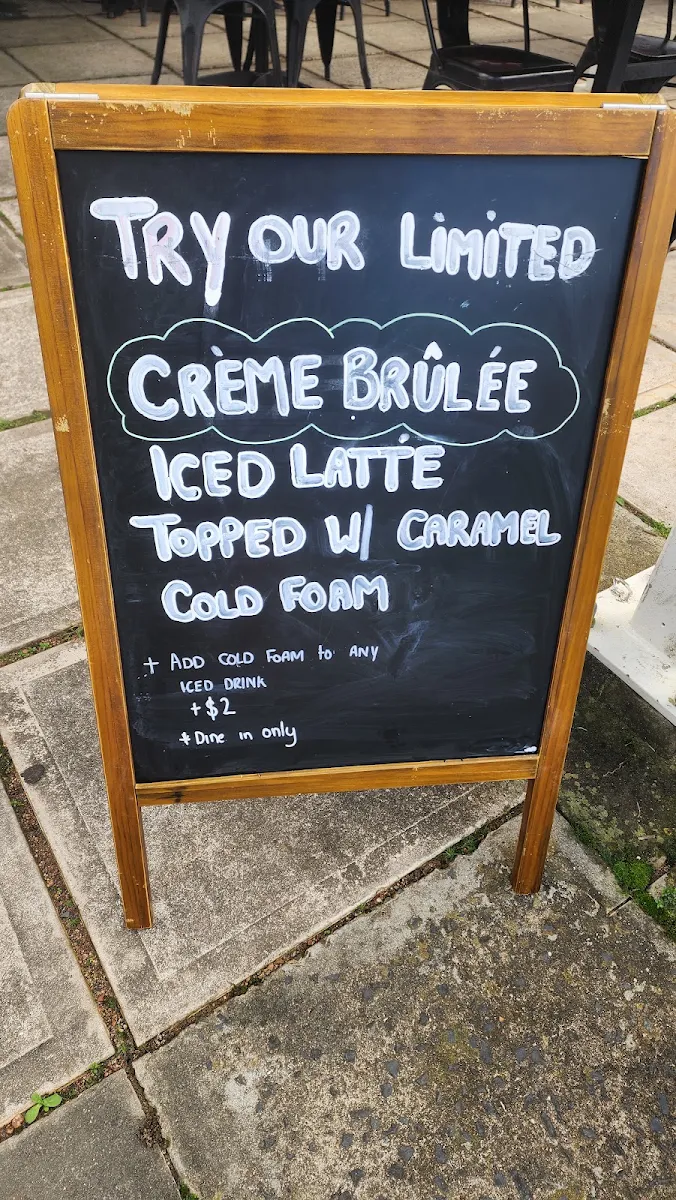 TRY OUR LIMITED
CRÈME BRÛLÉE
ICED LATTE
TOPPED W/ CARAMEL
COLD FOAM
+ ADD COLD FOAM to ANY
ICED DRINK
+$2
*Dine in only